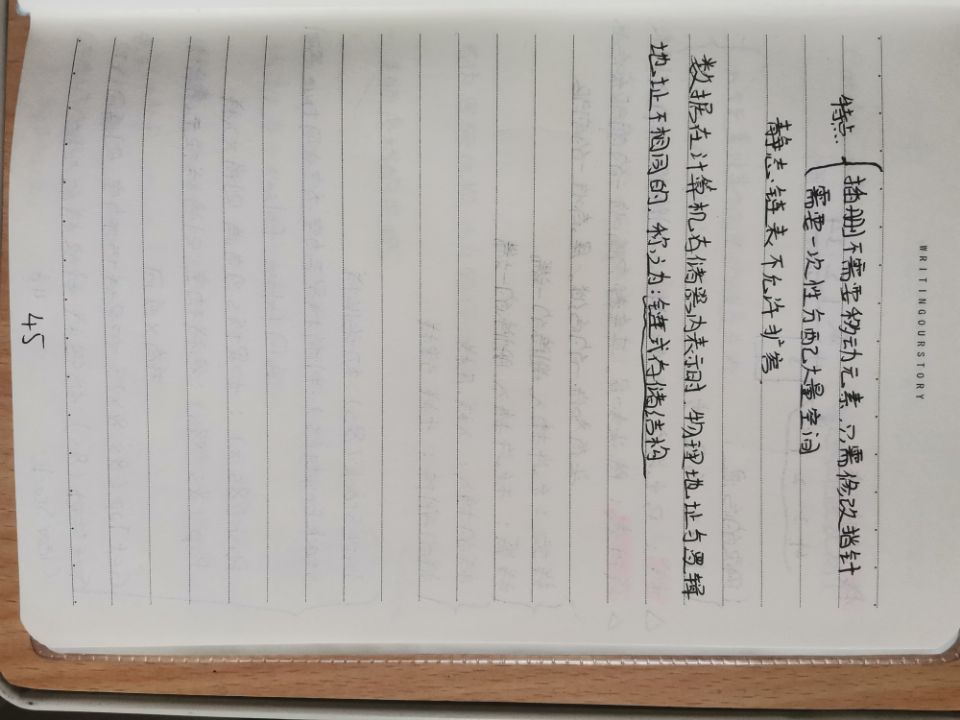 WRITINGOURSTORY
特点: 插删不需要移动元素,只需修改指针
需要一次性分配大量空间
静态链表不允许扩容.
数据在计算机存储器内表示时,物理地址与逻辑
地址不相同的,称之为:链式存储结构
45